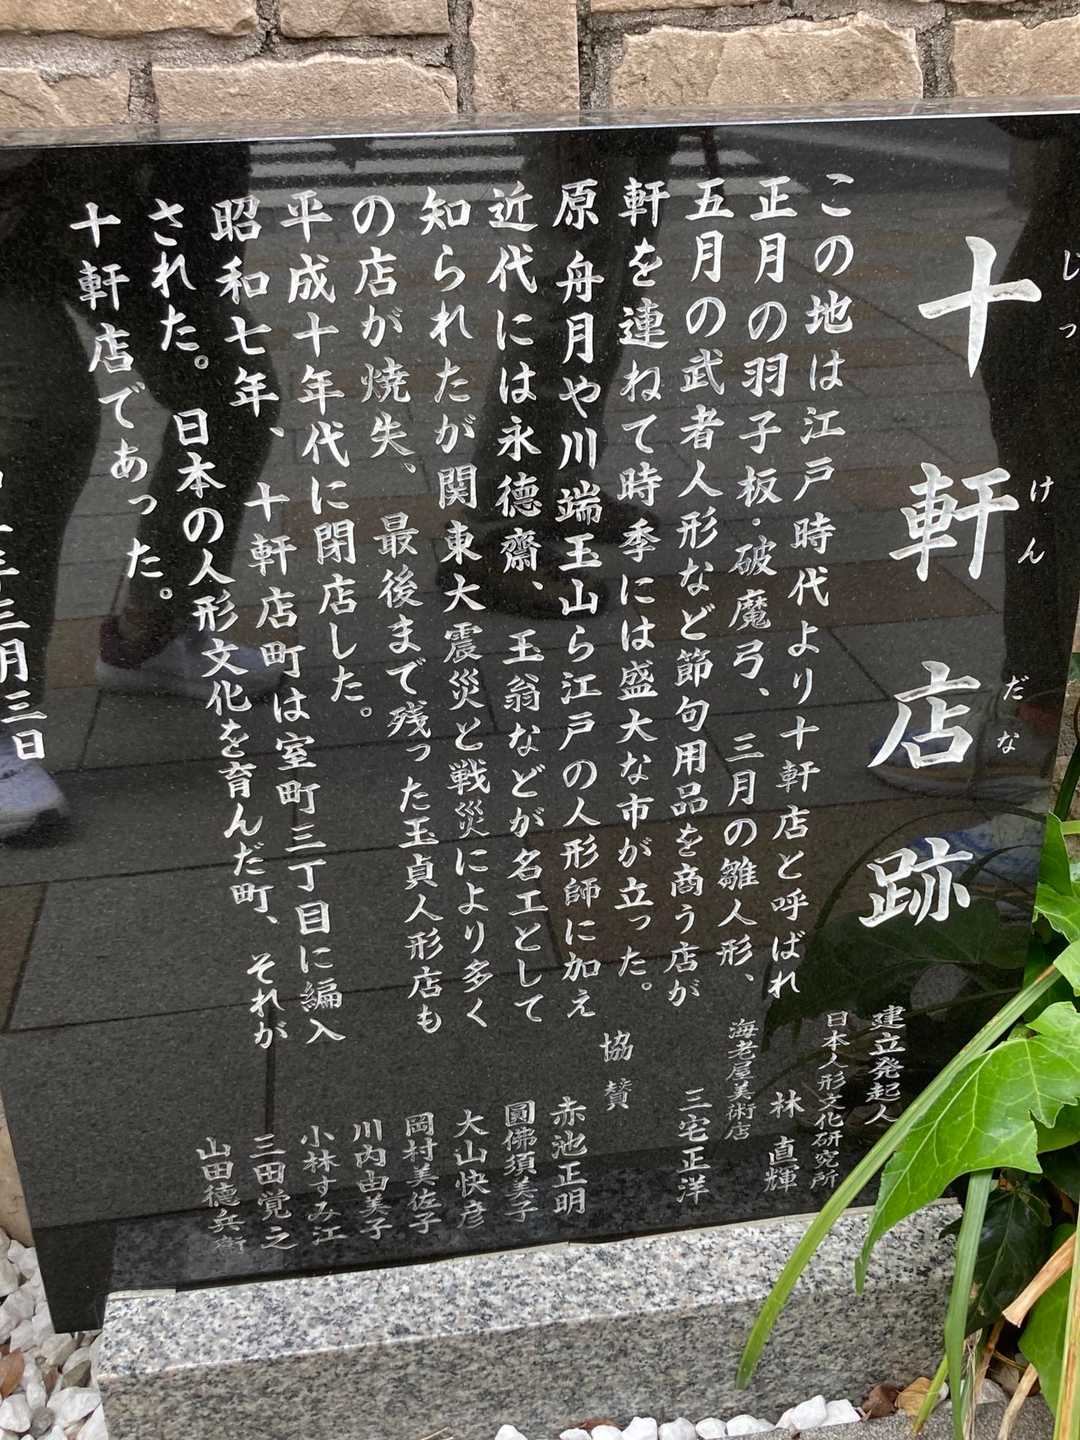 十軒店跡
じっ
けん
だな
この地は江戸時代より十軒店と呼ばれ
正月の羽子板・破魔弓、三月の雛人形、
五月の武者人形など節句用品を商う店が
軒を連ねて時季には盛大な市が立った。
原舟月や川端玉山ら江戸の人形師に加え
近代には永徳齋、玉翁などが名工として
知られたが関東大震災と戦災により多く
の店が焼失、最後まで残った玉貞人形店も
平成十年代に閉店した。
昭和七年、十軒店町は室町三丁目に編入
された。日本の人形文化を育んだ町、それが
十軒店であった。
年三月三日
建立発起人
日本人形文化研究所
林直輝
海老屋美術店
三宅正洋
協賛
赤池正明
圓佛須美子
大山快彦
岡村美佐子
川内由美子
小林すみ江
三田覚之
山田徳兵衛